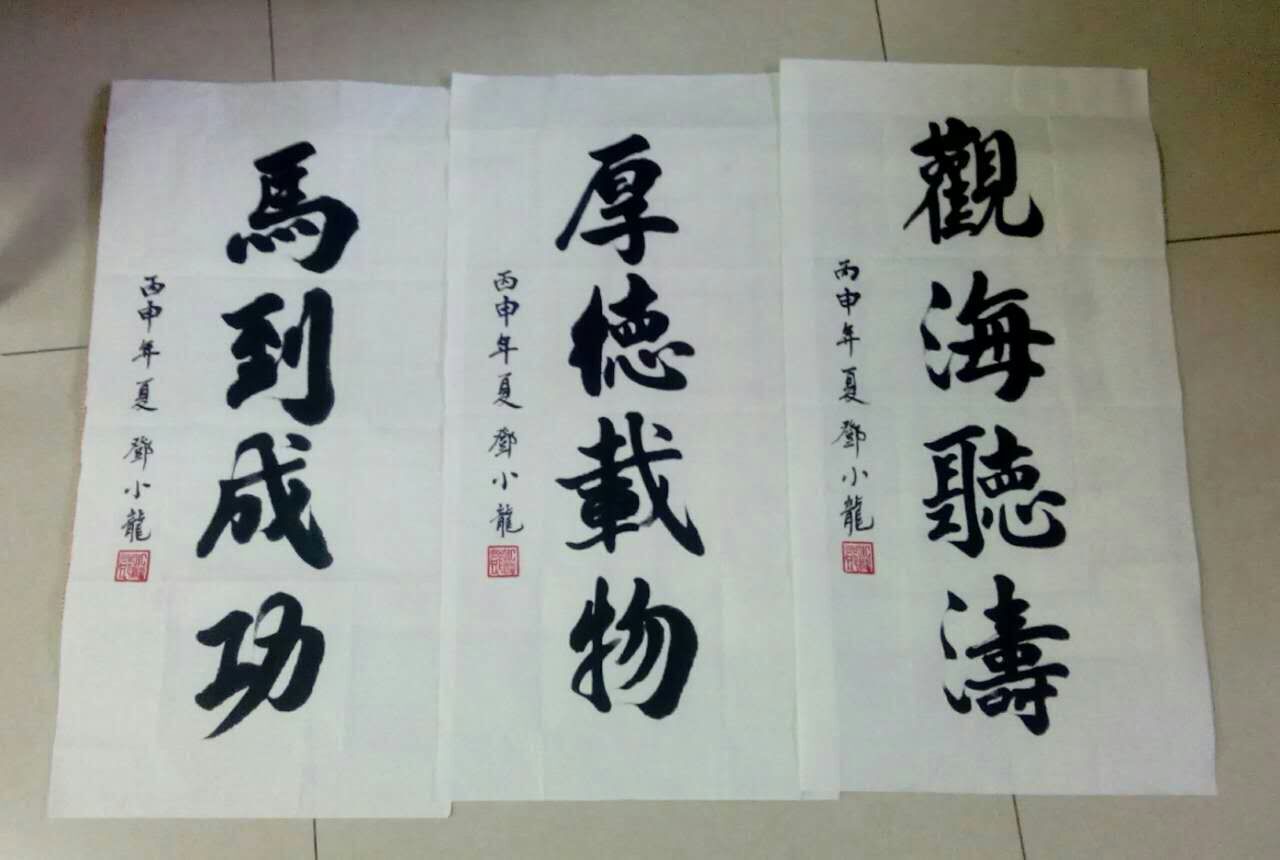 觀海聽濤
丙申年夏 鄧小龍
厚德載物
丙申年夏 鄧小龍
馬到成功
丙申年夏 鄧小龍